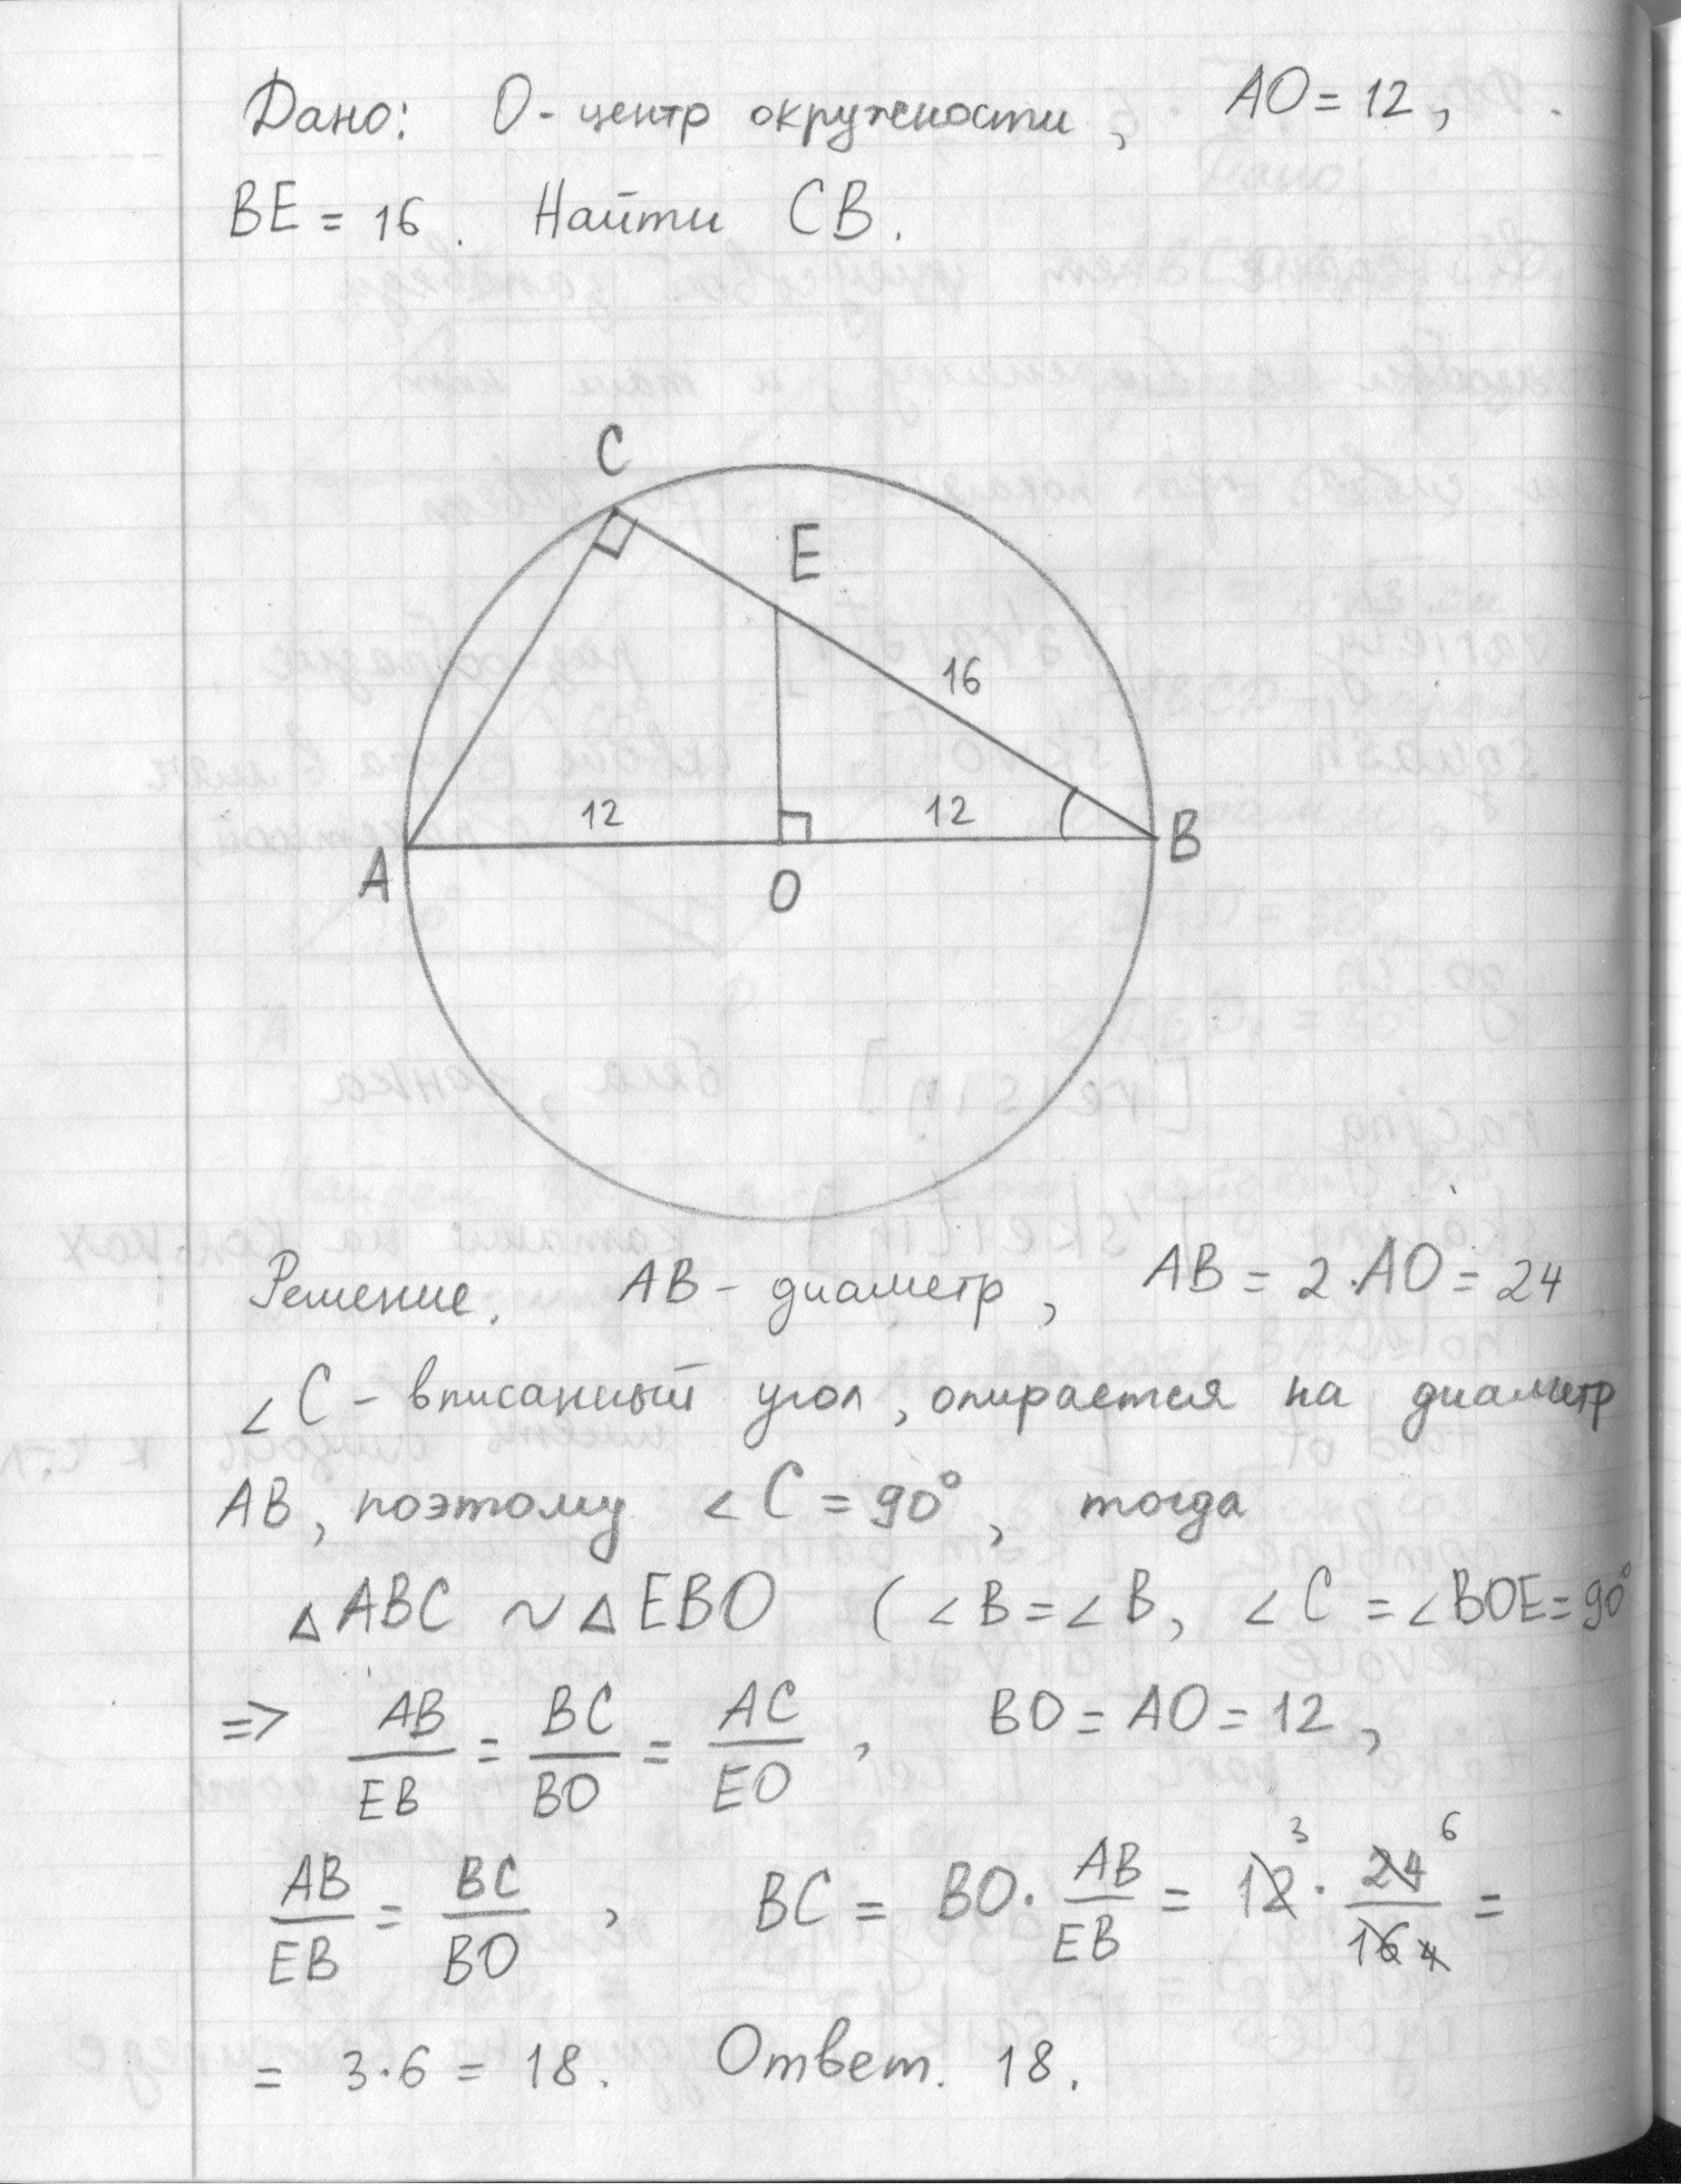 Дано: O - центр окружности, AO = 12,
BE = 16. Найти CB.
C
E
16
12
12
A
O
B
Решение. AB - диаметр, AB = 2·AO = 24
∠C - вписанный угол, опирается на диаметр
AB, поэтому ∠C = 90°, тогда
△ABC ~ △EBO (∠B = ∠B, ∠C = ∠BOE = 90°
=> AB/EB = BC/BO = AC/EO, BO = AO = 12,
AB/EB = BC/BO, BC = BO · AB/EB = 12 3 · 24 6/16 4 =
= 3·6 = 18. Ответ. 18.